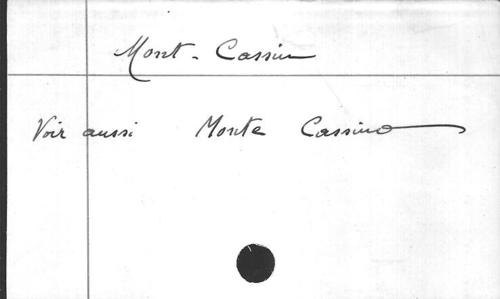 Mont-Cassin
Voir aussi Monte Cassino